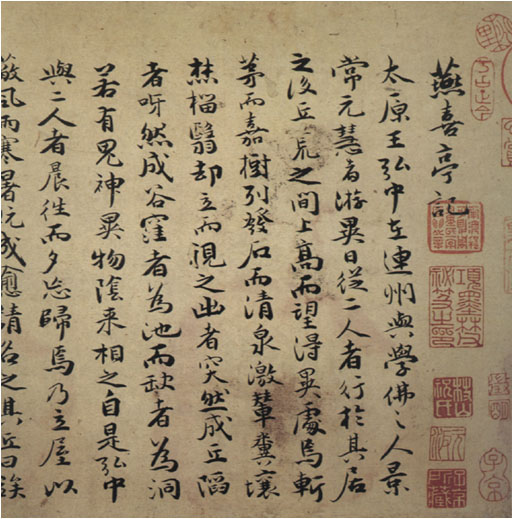 燕喜亭記
太原王弘中在連州與學佛之人景
常元慧者游異日從二人者行於其居
之後丘荒之間上高而望得異處焉斬
茅而嘉樹列發石而清泉激輦糞壤
焚榴翳却立而視之出者突然成丘陷
者呀然成谷窪者為池而缺者為洞
若有鬼神異物陰來相之自是弘中
與二人者晨往而夕忘歸焉乃立屋以
蔽風雨寒暑既成愈請名之其丘曰俟
項墨林父
祕笈之印
子京